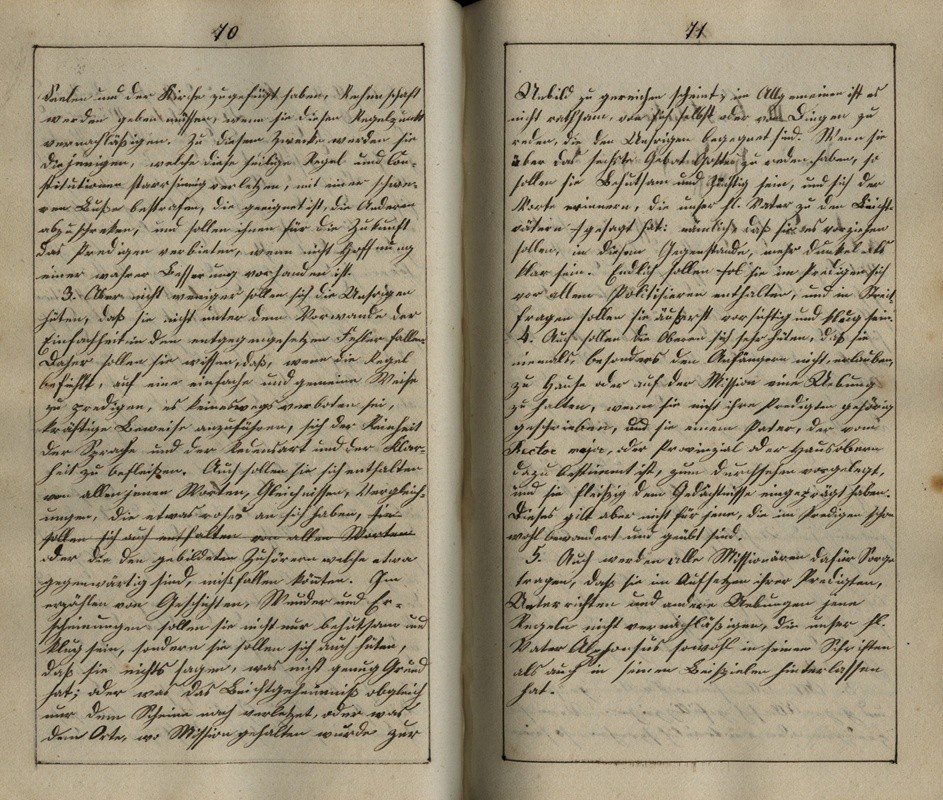 70
Seelen und der Kirche zugefügt haben, Rechenschaft
werden geben müssen, wenn sie diesen Regelpunkt
vernachläßigen. Zu diesem Zwecke werden sie
diejenigen, welche diese heilige Regel und Con-
stitutionen starrsinnig verletzen, mit einer schwe-
ren Buße bestrafen, die geeignet ist, die Andern
abzuschrecken, und sollen ihnen für die Zukunft
das Predigen verbieten, wenn nicht Hoffnung
einer wahren Besserung vorhanden ist.
3. Aber nicht weniger sollen sich die Unsrigen
hüten, daß sie nicht unter dem Vorwande der
Einfachheit in den entgegengesetzen Fehler fallen.
Daher sollen sie wissen, daß, wenn die Regel
befiehlt, auf eine einfache und gemeine Weise
zu predigen, es keineswegs verboten sei,
kräftige Beweise anzuführen, sich der Reinheit
der Sprache und der Redensart und der Klar-
heit zu befleißen. Auch sollen sie sich enthalten
von allen jenen Worten, Gleichnissen, Vergleich-
ungen, die etwas rohes an sich haben, sie
sollen sich auch enthalten von allen Worten
oder die den gebildeten Zuhörern welche etwa
gegenwärtig sind, mißfallen könnten. Im
erzählen von Geschichten, Wunder und Er-
scheinungen sollen sie nicht nur behutsam und
klug sein, sondern sie sollen sich auch hüten,
daß sie nichts sagen, was nicht genug Grund
hat; oder was das Beichtgeheimniß obgleich
nur dem Scheine nach verletzet, oder was
dem Orte, wo Mission gehalten wurde zur
71
Unbild zu gereichen scheint; im Allgemeinen ist es
nicht rathsam, von sich selbst oder von Dingen zu
reden, die den Unsrigen begegnet sind. Wenn sie
über das sechste Gebot Gottes zu reden haben, so
sollen sie behutsam und züchtig sein, und sich der
Worte erinnern, die unser hl. Vater zu den Beicht-
vätern gesagt hat: nämlich daß sie es vorziehen
sollen, in diesem Gegenstande, mehr dunkel als
klar sein. Endlich sollen sie im Predigen sich
vor allem Politisieren enthalten, und in Streit-
fragen sollen sie äußerst vorsichtig und klug sein.
4. Auch sollen die Oberen sich sehr hüten, daß sie
niemals besonders den Anfängern nicht erlauben,
zu Hause oder auf der Mission eine Übung
zu halten, wenn sie nicht ihre Predigten gehörig
geschrieben, und sie einem Pater, der vom
Rector major, oder Provinzial oder Hausobern
dazu bestimmt ist, zum durchsehen vorgelegt,
und sie fleißig dem Gedächtnisse eingeprägt haben.
Dieses gilt aber nicht für jene, die im Predigen schon
wohl bewandert und geübt sind.
5. Auch werden alle Missionären dafür Sorge
tragen, daß sie im Aufsetzen ihrer Predigten,
Unterrichten und andere Uebungen jene
Regeln nicht vernachläßigen, die unser hl.
Vater Alphonsus sowohl in seinen Schriften
als auch in seinen Beispielen hinterlassen
hat.